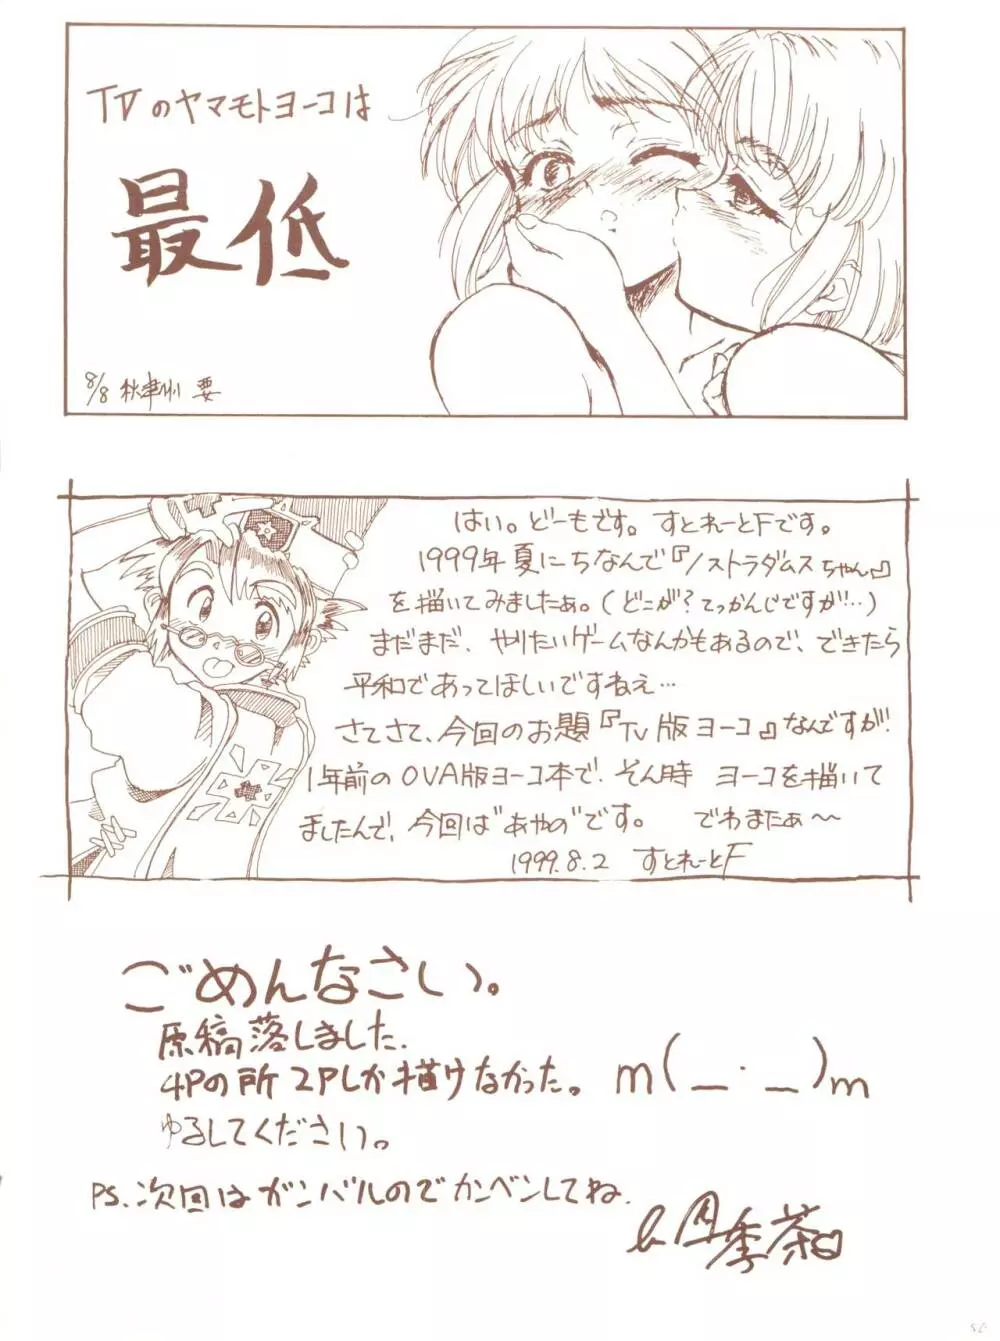 TVのヤマモトヨーコは
最低
8/8 秋津州 要
はい。どーもです。すとれーとFです。
1999年夏にちなんで『ノストラダムスちゃん』
を描いてみましたぁ。(どこが?てっかんじですが…)
まだまだ、やりたいゲームなんかもあるので、できたら
平和であってほしいですねえ…
さてさて、今回のお題『TV版ヨーコ』なんですが、
1年前のOVA版ヨーコ本で、そん時 ヨーコを描いて
ましたんで、今回は"あやの"です。 でわまたぁ～
1999.8.2 すとれーとF
ごめんなさい。
原稿落しました.
4Pの所2Pしか描けなかった。 m(_._)m
ゆるしてください。
PS.次回はガンバルのでカンベンしてね.
季茶